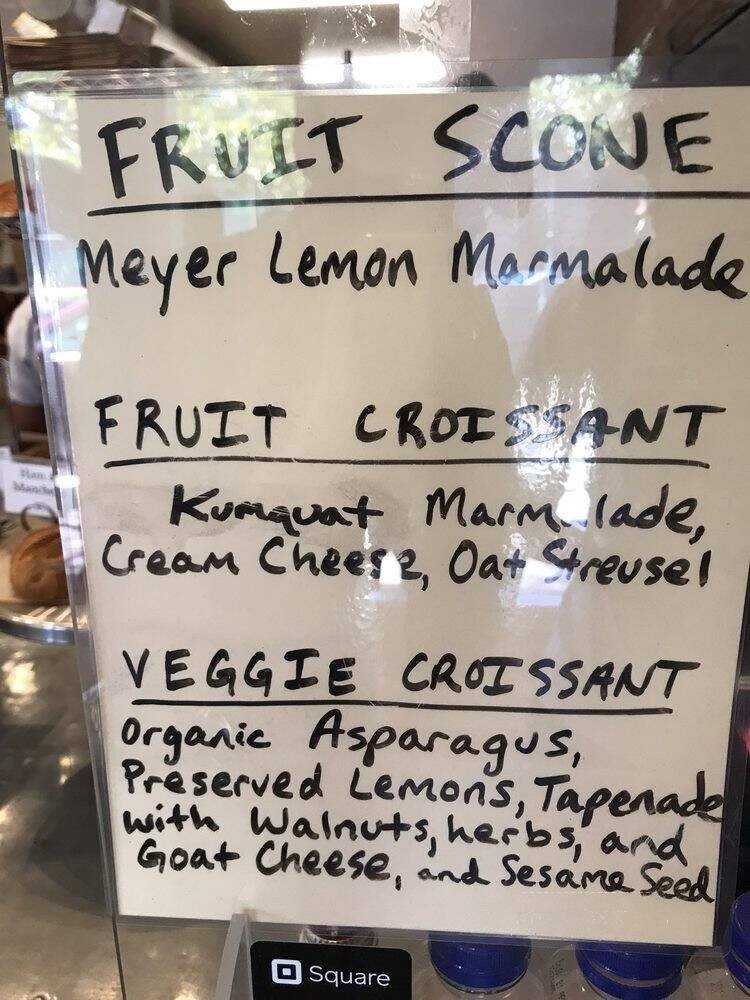 FRUIT SCONE
Meyer Lemon Marmalade
FRUIT CROISSANT
Kumquat Marmalade,
Cream Cheese, Oat Streusel
VEGGIE CROISSANT
Organic Asparagus,
Preserved Lemons, Tapenade
with Walnuts, herbs, and
Goat Cheese, and Sesame Seed
Square